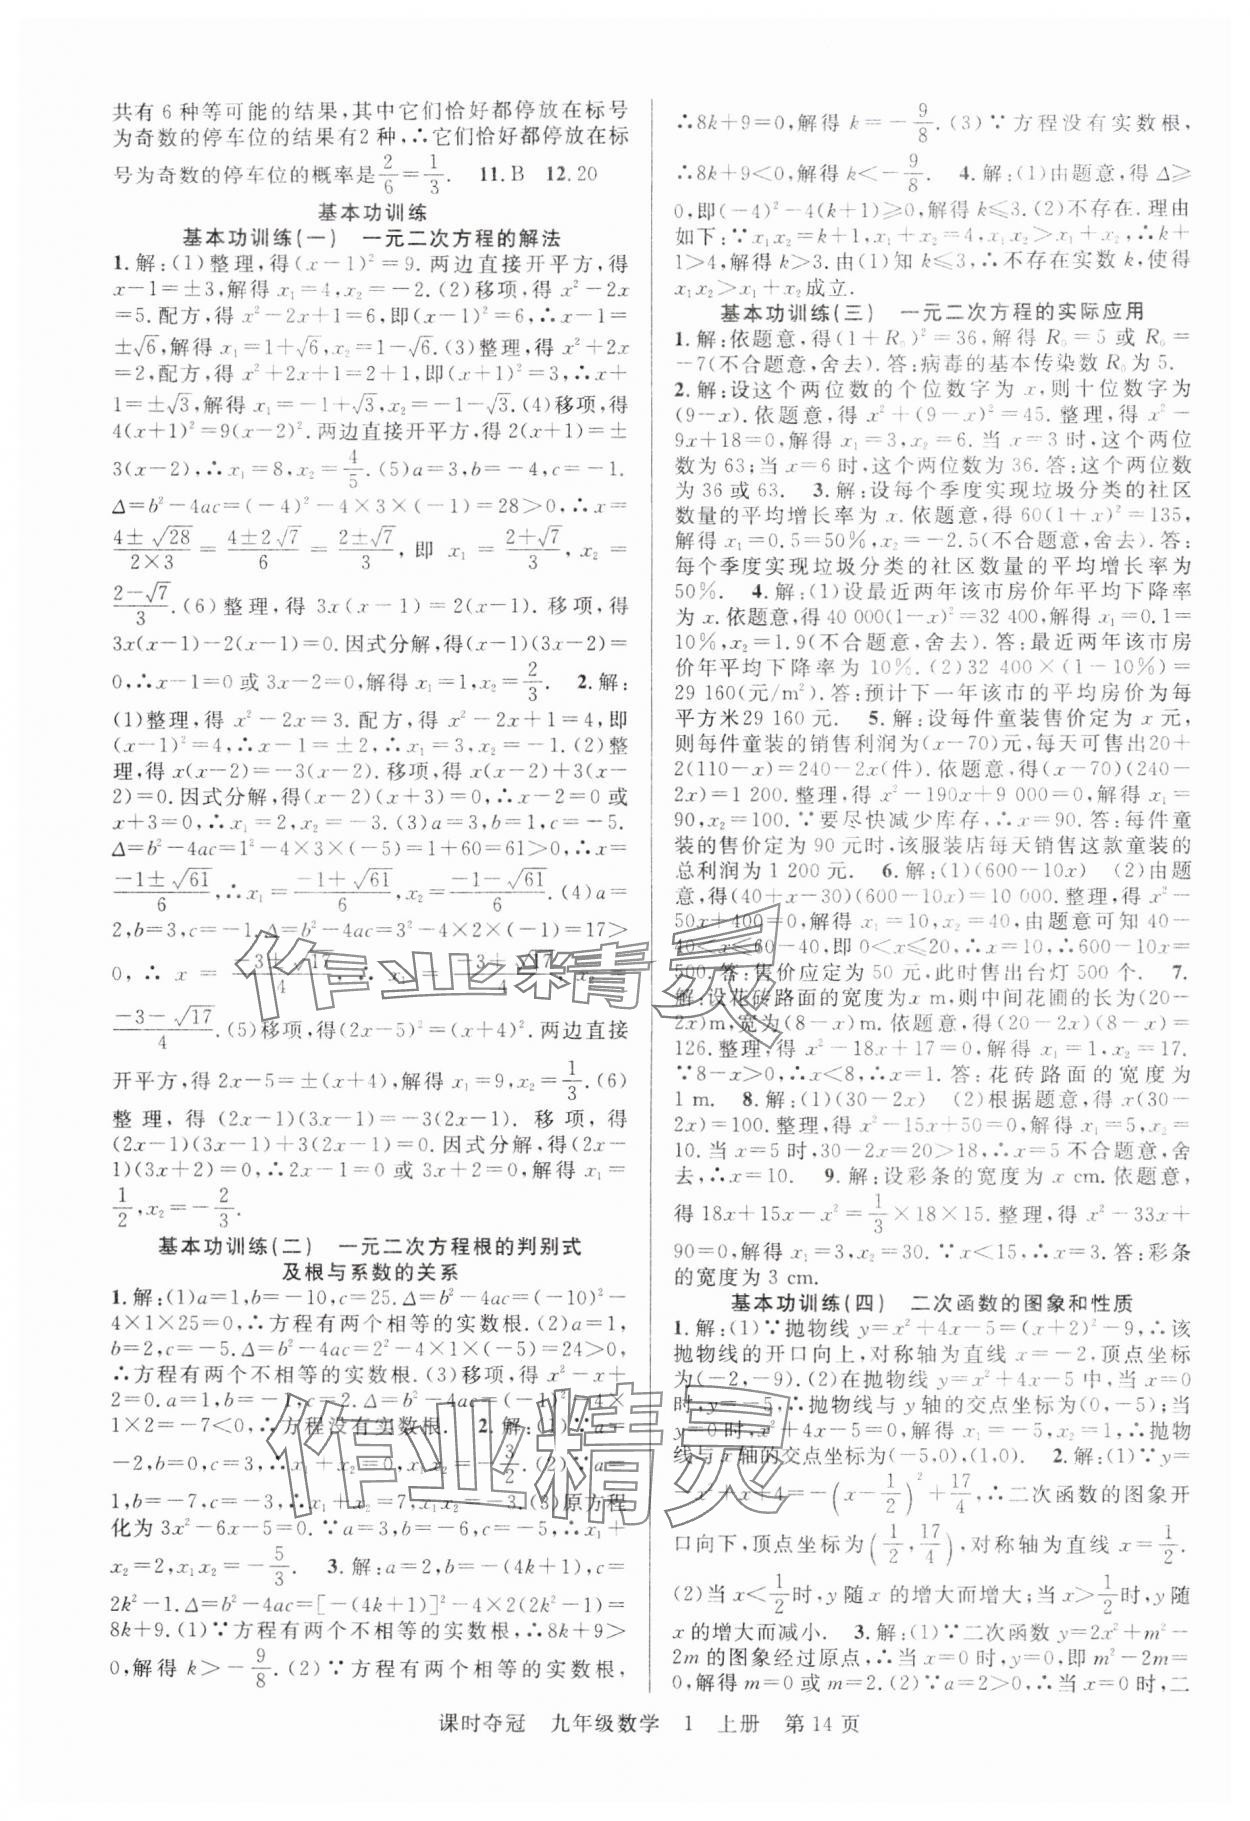 共有6种等可能的结果,其中它们恰好都停放在标号
为奇数的停车位的结果有2种,∴它们恰好都停放在标
号为奇数的停车位的概率是2/6=1/3. 11.B 12.20
基本功训练
基本功训练(一) 一元二次方程的解法
1.解:(1)整理,得(x-1)²=9.两边直接开平方,得
x-1=±3,解得x₁=4,x₂=-2.(2)移项,得x²-2x
=5.配方,得x²-2x+1=6,即(x-1)²=6,∴x-1=
±√6,解得x₁=1+√6,x₂=1-√6.(3)整理,得x²+2x
=2.配方,得x²+2x+1=2+1,即(x+1)²=3,∴x+
1=±√3,解得x₁=-1+√3,x₂=-1-√3.(4)移项,得
4(x+1)²=9(x-2)².两边直接开平方,得2(x+1)=±
3(x-2),∴x₁=8,x₂=4/5.(5)a=3,b=-4,c=-1.
Δ=b²-4ac=(-4)²-4×3×(-1)=28>0,∴x=
(4±√28)/(2×3)=(4±2√7)/6=(2±√7)/3,即x₁=(2+√7)/3,x₂=
(2-√7)/3.(6)整理,得3x(x-1)=2(x-1).移项,得
3x(x-1)-2(x-1)=0.因式分解,得(x-1)(3x-2)=
0,∴x-1=0或3x-2=0,解得x₁=1,x₂=2/3. 2.解:
(1)整理,得x²-2x=3.配方,得x²-2x+1=4,即
(x-1)²=4,∴x-1=±2,∴x₁=3,x₂=-1.(2)整
理,得x(x-2)=-3(x-2).移项,得x(x-2)+3(x-
2)=0.因式分解,得(x-2)(x+3)=0,∴x-2=0或
x+3=0,∴x₁=2,x₂=-3.(3)a=3,b=1,c=-5.
Δ=b²-4ac=1²-4×3×(-5)=1+60=61>0,∴x=
(-1±√61)/6,∴x₁=(-1+√61)/6,x₂=(-1-√61)/6.(4)a=
2,b=3,c=-1.Δ=b²-4ac=3²-4×2×(-1)=17>
0,∴x=(-3±√17)/4,∴x₁=(-3+√17)/4,x₂=
(-3-√17)/4.(5)移项,得(2x-5)²=(x+4)².两边直接
开平方,得2x-5=±(x+4),解得x₁=9,x₂=1/3.(6)
整理,得(2x-1)(3x-1)=-3(2x-1).移项,得
(2x-1)(3x-1)+3(2x-1)=0.因式分解,得(2x-
1)(3x+2)=0,∴2x-1=0或3x+2=0,解得x₁=
1/2,x₂=-2/3.
基本功训练(二) 一元二次方程根的判别式
及根与系数的关系
1.解:(1)a=1,b=-10,c=25.Δ=b²-4ac=(-10)²-
4×1×25=0,∴方程有两个相等的实数根.(2)a=1,
b=2,c=-5.Δ=b²-4ac=2²-4×1×(-5)=24>0,
∴方程有两个不相等的实数根.(3)移项,得x²-x+
2=0.a=1,b=-1,c=2.Δ=b²-4ac=(-1)²-4×
1×2=-7<0,∴方程没有实数根. 2.解:(1)∵a=
-2,b=0,c=3,∴x₁+x₂=0,x₁x₂=-3/2.(2)∵a=
1,b=-7,c=-3,∴x₁+x₂=7,x₁x₂=-3.(3)原方程
化为3x²-6x-5=0.∵a=3,b=-6,c=-5,∴x₁+
x₂=2,x₁x₂=-5/3. 3.解:a=2,b=-(4k+1),c=
2k²-1.Δ=b²-4ac=[-(4k+1)]²-4×2(2k²-1)=
8k+9.(1)∵方程有两个不相等的实数根,∴8k+9>
0,解得k>-9/8.(2)∵方程有两个相等的实数根,
∴8k+9=0,解得k=-9/8.(3)∵方程没有实数根,
∴8k+9<0,解得k<-9/8. 4.解:(1)由题意,得Δ≥
0,即(-4)²-4(k+1)≥0,解得k≤3.(2)不存在.理由
如下:∵x₁x₂=k+1,x₁+x₂=4,x₁x₂>x₁+x₂,∴k+
1>4,解得k>3.由(1)知k≤3,∴不存在实数k,使得
x₁x₂>x₁+x₂成立.
基本功训练(三) 一元二次方程的实际应用
1.解:依题意,得(1+R₀)²=36,解得R₀=5或R₀=
-7(不合题意,舍去).答:病毒的基本传染数R₀为5.
2.解:设这个两位数的个位数字为x,则十位数字为
(9-x).依题意,得x²+(9-x)²=45.整理,得x²-
9x+18=0,解得x₁=3,x₂=6.当x=3时,这个两位
数为63;当x=6时,这个两位数为36.答:这个两位数
为36或63. 3.解:设每个季度实现垃圾分类的社区
数量的平均增长率为x.依题意,得60(1+x)²=135,
解得x₁=0.5=50%,x₂=-2.5(不合题意,舍去).答:
每个季度实现垃圾分类的社区数量的平均增长率为
50%. 4.解:(1)设最近两年该市房价年平均下降率
为x.依题意,得40 000(1-x)²=32 400,解得x₁=0.1=
10%,x₂=1.9(不合题意,舍去).答:最近两年该市房
价年平均下降率为10%.(2)32 400×(1-10%)=
29 160(元/m²).答:预计下一年该市的平均房价为每
平方米29 160元. 5.解:设每件童装售价定为x元,
则每件童装的销售利润为(x-70)元,每天可售出20+
2(110-x)=240-2x(件).依题意,得(x-70)(240-
2x)=1 200.整理,得x²-190x+9 000=0,解得x₁=
90,x₂=100.∵要尽快减少库存,∴x=90.答:每件童
装的售价定为90元时,该服装店每天销售这款童装的
总利润为1 200元. 6.解:(1)(600-10x) (2)由题
意,得(40+x-30)(600-10x)=10 000.整理,得x²-
50x+400=0,解得x₁=10,x₂=40,由题意可知40-
40<x≤60-40,即0<x≤20,∴x=10,∴600-10x=
500.答:售价应定为50元,此时售出台灯500个. 7.
解:设花砖路面的宽度为x m,则中间花圃的长为(20-
2x)m,宽为(8-x)m.依题意,得(20-2x)(8-x)=
126.整理,得x²-18x+17=0,解得x₁=1,x₂=17.
∵8-x>0,∴x<8,∴x=1.答:花砖路面的宽度为
1 m. 8.解:(1)(30-2x) (2)根据题意,得x(30-
2x)=100.整理,得x²-15x+50=0,解得x₁=5,x₂=
10.当x=5时,30-2x=20>18,∴x=5不合题意,舍
去,∴x=10. 9.解:设彩条的宽度为x cm.依题意,
得18x+15x-x²=1/3×18×15.整理,得x²-33x+
90=0,解得x₁=3,x₂=30.∵x<15,∴x=3.答:彩条
的宽度为3 cm.
基本功训练(四) 二次函数的图象和性质
1.解:(1)∵抛物线y=x²+4x-5=(x+2)²-9,∴该
抛物线的开口向上,对称轴为直线x=-2.顶点坐标
为(-2,-9).(2)在抛物线y=x²+4x-5中,当x=0
时,y=-5,∴抛物线与y轴的交点坐标为(0,-5);当
y=0时,x²+4x-5=0,解得x₁=-5,x₂=1,∴抛物
线与x轴的交点坐标为(-5,0),(1,0). 2.解:(1)∵y=
-x²+x+4=-(x-1/2)²+17/4,∴二次函数的图象开
口向下,顶点坐标为(1/2,17/4),对称轴为直线x=1/2.
(2)当x<1/2时,y随x的增大而增大;当x>1/2时,y随
x的增大而减小. 3.解:(1)∵二次函数y=2x²+m²-
2m的图象经过原点,∴当x=0时,y=0,即m²-2m=
0,解得m=0或m=2.(2)∵2>0,∴当x=0时,二
课时夺冠 九年级数学 1 上册 第14页
作业精灵
作业精灵